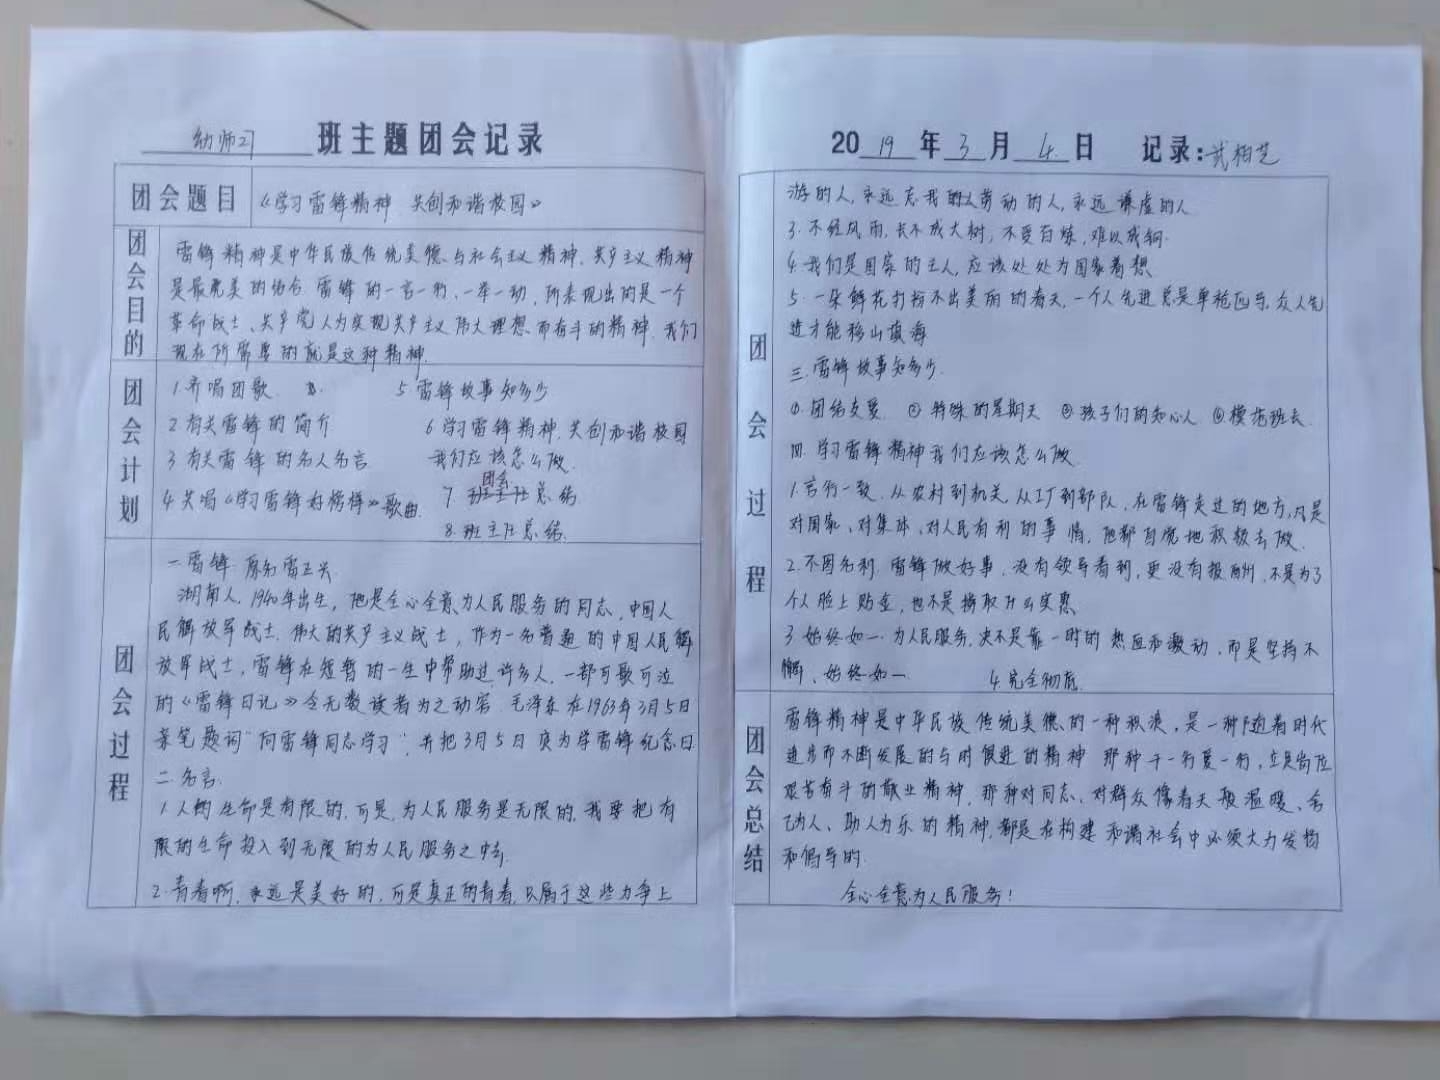 幼师27 班主题团会记录
团会题目 《学习雷锋精神 共创和谐校园》
团会目的
雷锋精神是中华民族传统美德、与社会主义精神、共产主义精神
是最完美的结合 雷锋的一言一行、一举一动, 所表现出的是一个
革命战士、共产党人为实现共产主义伟大理想而奋斗的精神. 我们
现在所需要的就是这种精神.
团会计划
1.齐唱团歌. 5 雷锋故事知多少
2 有关雷锋的简介 6 学习雷锋精神.共创和谐校园
3 有关雷锋的名人名言 我们应该怎么做.
4 共唱《学习雷锋好榜样》歌曲. 7. 团会总结
8.班主任总结.
团会过程
一 雷锋 原名雷正兴
湖南人, 1940年出生, 他是全心全意为人民服务的同志, 中国人
民解放军战士. 伟大的共产主义战士, 作为一名普通的中国人民解
放军战士, 雷锋在短暂的一生中帮助过许多人, 一部可歌可泣
的《雷锋日记》令无数读者为之动容. 毛泽东在1963年3月5日
亲笔题词"向雷锋同志学习", 并把3月5日定为学雷锋纪念日.
二 名言.
1.人的生命是有限的, 可是, 为人民服务是无限的, 我要把有
限的生命投入到无限的为人民服务之中去.
2.青春啊, 永远是美好的, 可是真正的青春, 只属于这些力争上
2019年3月4日 记录:武柏芝
团会过程
游的人, 永远忘我的人劳动的人, 永远谦虚的人
3.不经风雨, 长不成大树, 不受百炼, 难以成钢.
4.我们是国家的主人, 应该处处为国家着想
5. 一朵鲜花打扮不出美丽的春天, 一个人先进总是单枪匹马, 众人先
进才能移山填海
三.雷锋故事知多少.
①.团结友爱. ②特殊的星期天 ③孩子们的知心人 ④模范班长.
四.学习雷锋精神我们应该怎么做.
1.言行一致. 从农村到机关, 从工厂到部队, 在雷锋走过的地方, 凡是
对国家、对集体、对人民有利的事情, 他都自觉地积极去做.
2.不图名利. 雷锋做好事, 没有领导看到, 更没有报酬, 不是为了
个人脸上贴金, 也不是捞取什么实惠
3.始终如一. 为人民服务, 决不是靠一时的热血和激动, 而是坚持不
懈、始终如一. 4.完全彻底.
团会总结
雷锋精神是中华民族传统美德的一种积淀, 是一种随着时代
进步而不断发展的与时俱进的精神 那种干一行爱一行, 立足岗位
艰苦奋斗的敬业精神, 那种对同志、对群众像春天般温暖、舍
己为人、助人为乐的精神, 都是在构建和谐社会中必须大力发扬
和倡导的.
全心全意为人民服务!